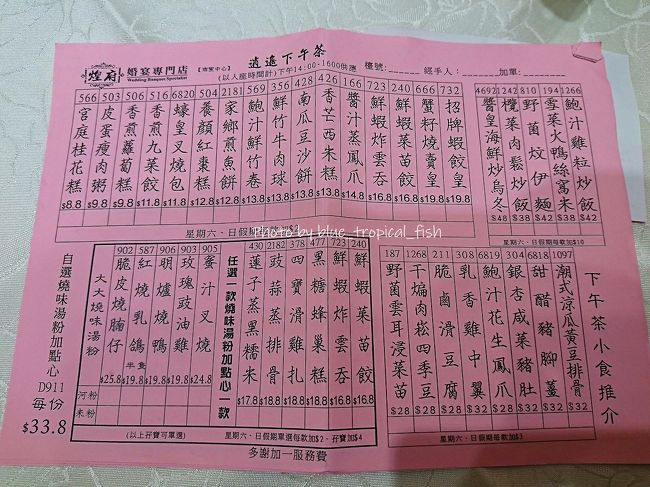 煌府 婚宴專門店
Wedding Banquet Specialist
【商業中心】
逍遙下午茶
(以入座時間計)下午14:00-1600供應
檯號:______ 經手人:______ 加單:______
732 招牌蝦餃 $19.8
666 蟹籽燒賣皇 $19.8
240 鮮蝦菜苗餃 $16.8
723 鮮蝦炸雲吞 $16.8
166 醬汁蒸鳳爪 $14.8
426 香芒西米糕 $13.8
428 南瓜豆沙餅 $13.8
356 鮮竹牛肉球 $13.8
569 鮑汁鮮竹卷 $13.8
2181 家鄉煎魚餅 $12.8
504 養顏紅棗糕 $12.8
6820 蠔皇叉燒包 $12.8
516 香煎九菜餃 $11.8
506 香煎蘿蔔糕 $11.8
503 皮蛋瘦肉粥 $9.8
566 宮庭桂花糕 $8.8
1266 鮑汁雞粒炒飯 $42
194 雪菜火鴨絲窩米 $38
810 野菌炆伊麵 $42
1242 欖菜肉鬆炒飯 $38
4692 醬皇海鮮炒烏冬 $48
星期六、日假期
星期六、日假期每款加$10
自選燒味湯粉加點心
D911
每份
$33.8
大大燒味湯粉
河粉
米粉
905 蜜汁叉燒 $19.8
903 玫瑰豉油雞 $19.8
906 明爐燒鴨 $19.8
587 紅燒乳鴿 半隻 $19.8
902 脆皮燒腩仔 $25.8
(以上孖寶可單選)
任選一款燒味湯粉加點心一款
240 鮮蝦菜苗餃 $16.8
723 鮮蝦炸雲吞 $16.8
477 黑糖蜂巢糕 $18.8
378 四寶滑雞扎 $18.8
2182 豉蒜蒸排骨 $18.8
430 蓮子蒸黑糯米 $17.8
星期六、日假期單選每款加$2，孖寶加$4
下午茶小食推介
1097 潮式涼瓜黃豆排骨 $32
6818 甜醋豬腳薑 $32
304 銀杏咸菜豬肚 $32
6819 鮑汁花生鳳爪 $32
308 乳香雞中翼 $32
211 脆鹵滑豆腐 $28
1268 干煸肉崧四季豆 $28
187 野菌雲耳浸菜苗 $28
星期六、日假期每款加$3
多謝加一服務費
Photo by blue_tropical_fish